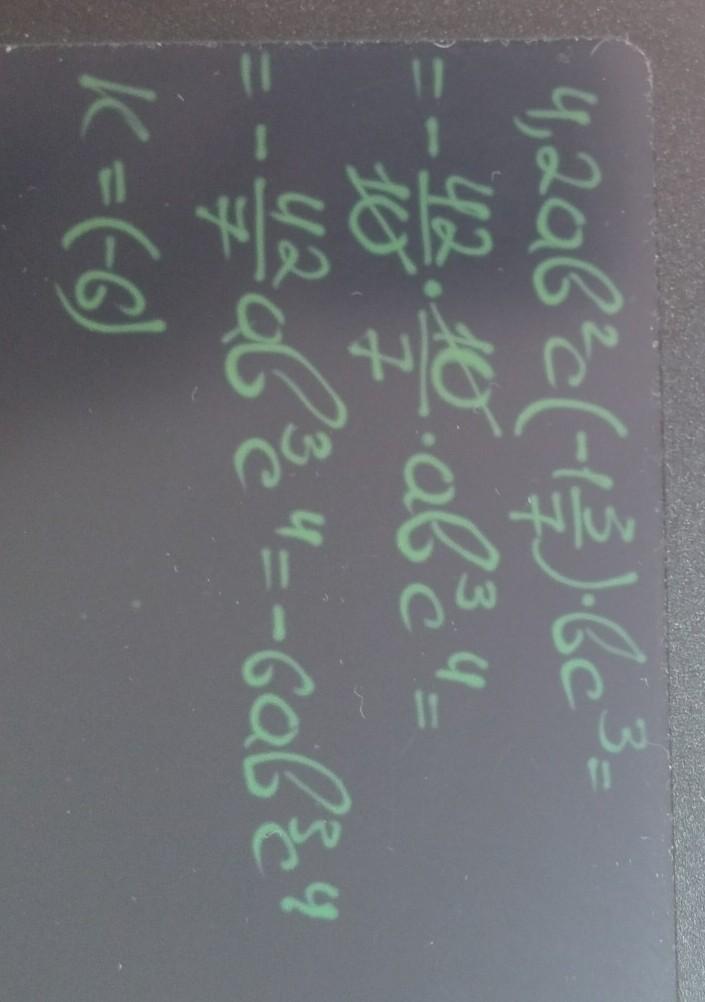 4,2ab²c(-1 3/7)·bc³=
= - 42/10 · 10/7 · ab³c⁴ =
= - 42/7 ab³c⁴ = -6ab³c⁴
K = (-6)